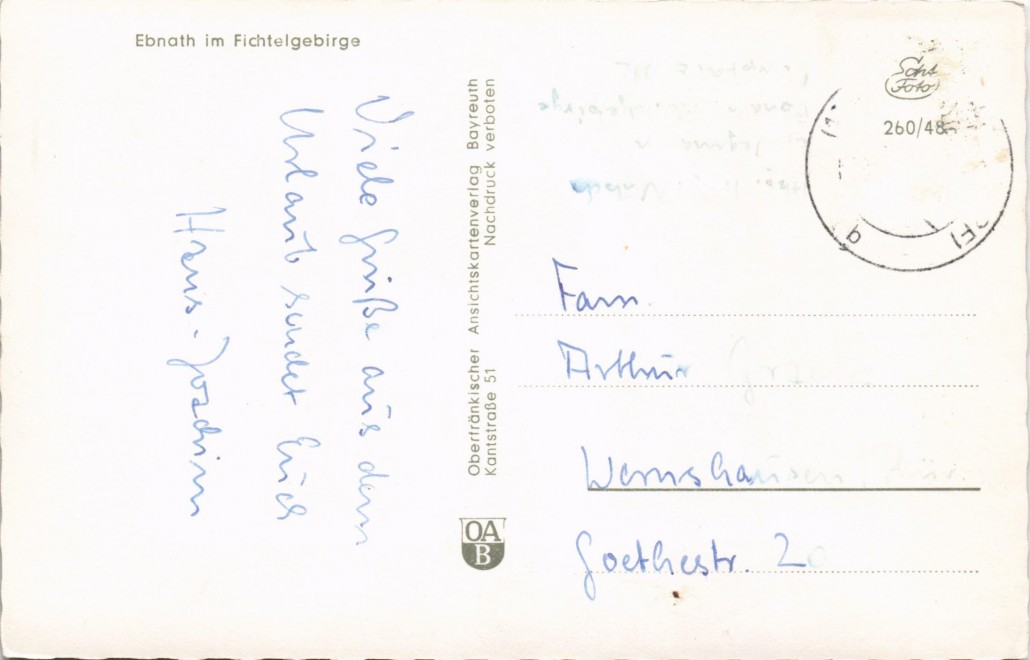 Ebnath im Fichtelgebirge
Viele Grüße aus dem
Urlaub sendet Euch
Hans-Joachim
Oberfränkischer Ansichtskartenverlag Bayreuth
Kantstraße 51 Nachdruck verboten
OA
B
Foto
260/48
Fam.
Arthur
Wernshausen
Goethestr. 20